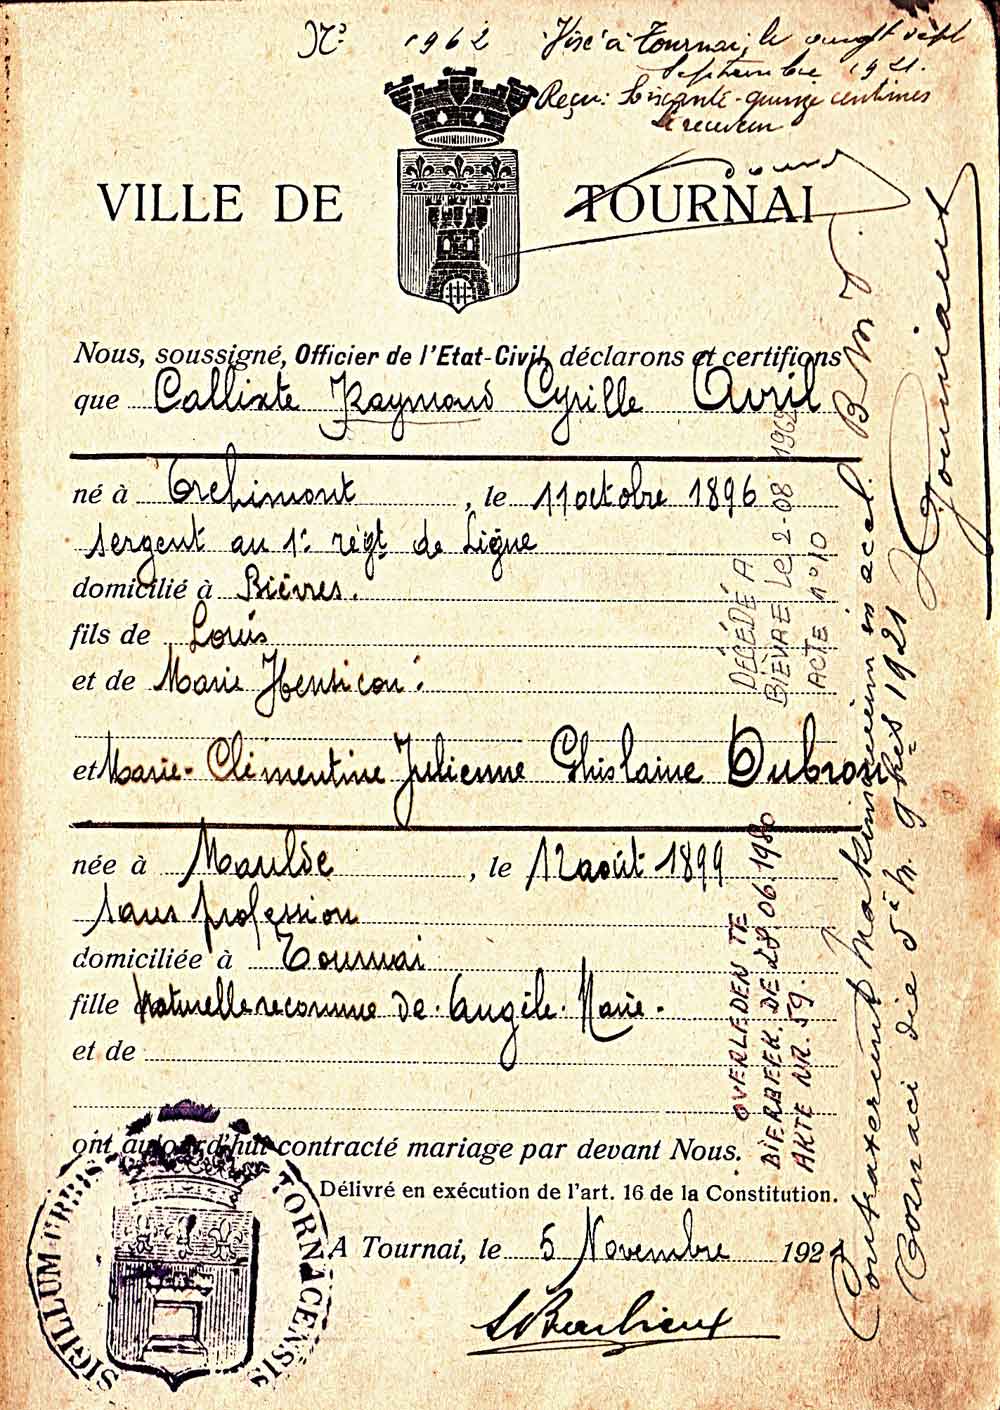 N° 1962
Visé à Tournai, le vingt sept
Septembre 1921.
Reçu: Soixante-quinze centimes
Le receveur
VILLE DE TOURNAI
Nous, soussigné, Officier de l'Etat-Civil, déclarons et certifions
que Callixte Raymond Cyrille Avril
né à Orchimont, le 11 octobre 1896
sergent au 1er régt de Ligne
domicilié à Bièvres.
fils de Louis
et de Marie Henricou.
et Marie-Clémentine Julienne Ghislaine Dubron
née à Maulde, le 12 août 1899
sans profession
domiciliée à Tournai
fille naturelle reconnue de Angèle-Marie-
et de
ont aujourd'hui contracté mariage par devant Nous.
Délivré en exécution de l'art. 16 de la Constitution.
A Tournai, le 5 Novembre 1921
SIGILLUM URBIS TORNACENSIS
DÉCÉDÉ A
BIÈVRE LE 2-08 1962
ACTE N°10
OVERLEDEN TE
BIERBEEK DE 28 06 1980
AKTE NR. 59.
Contraxerunt Matrimonium in eccl. B M V.
Tornaci die 5a M. 9bris 1921